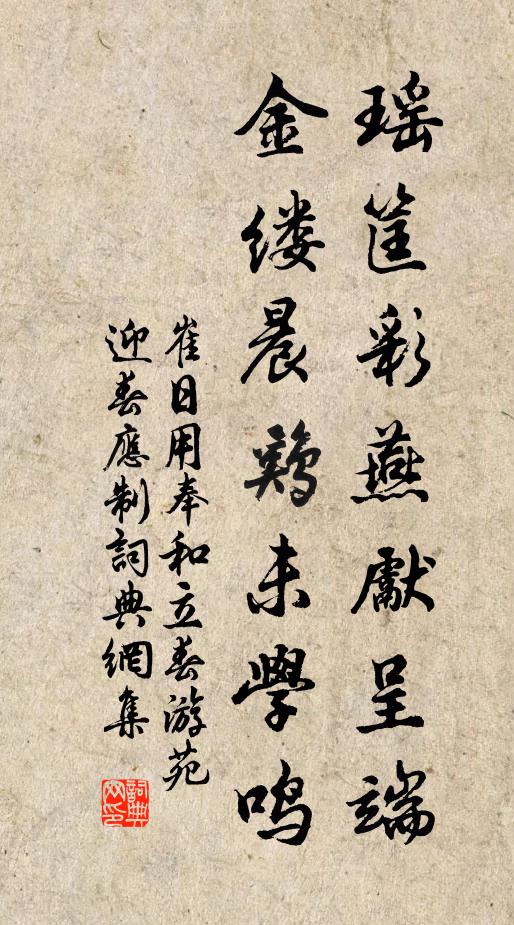 瑶筐彩燕獻呈端
金缕晨鷄未學鳴
崔日用奉和立春游苑
迎春應制詞典網集
詞典网印